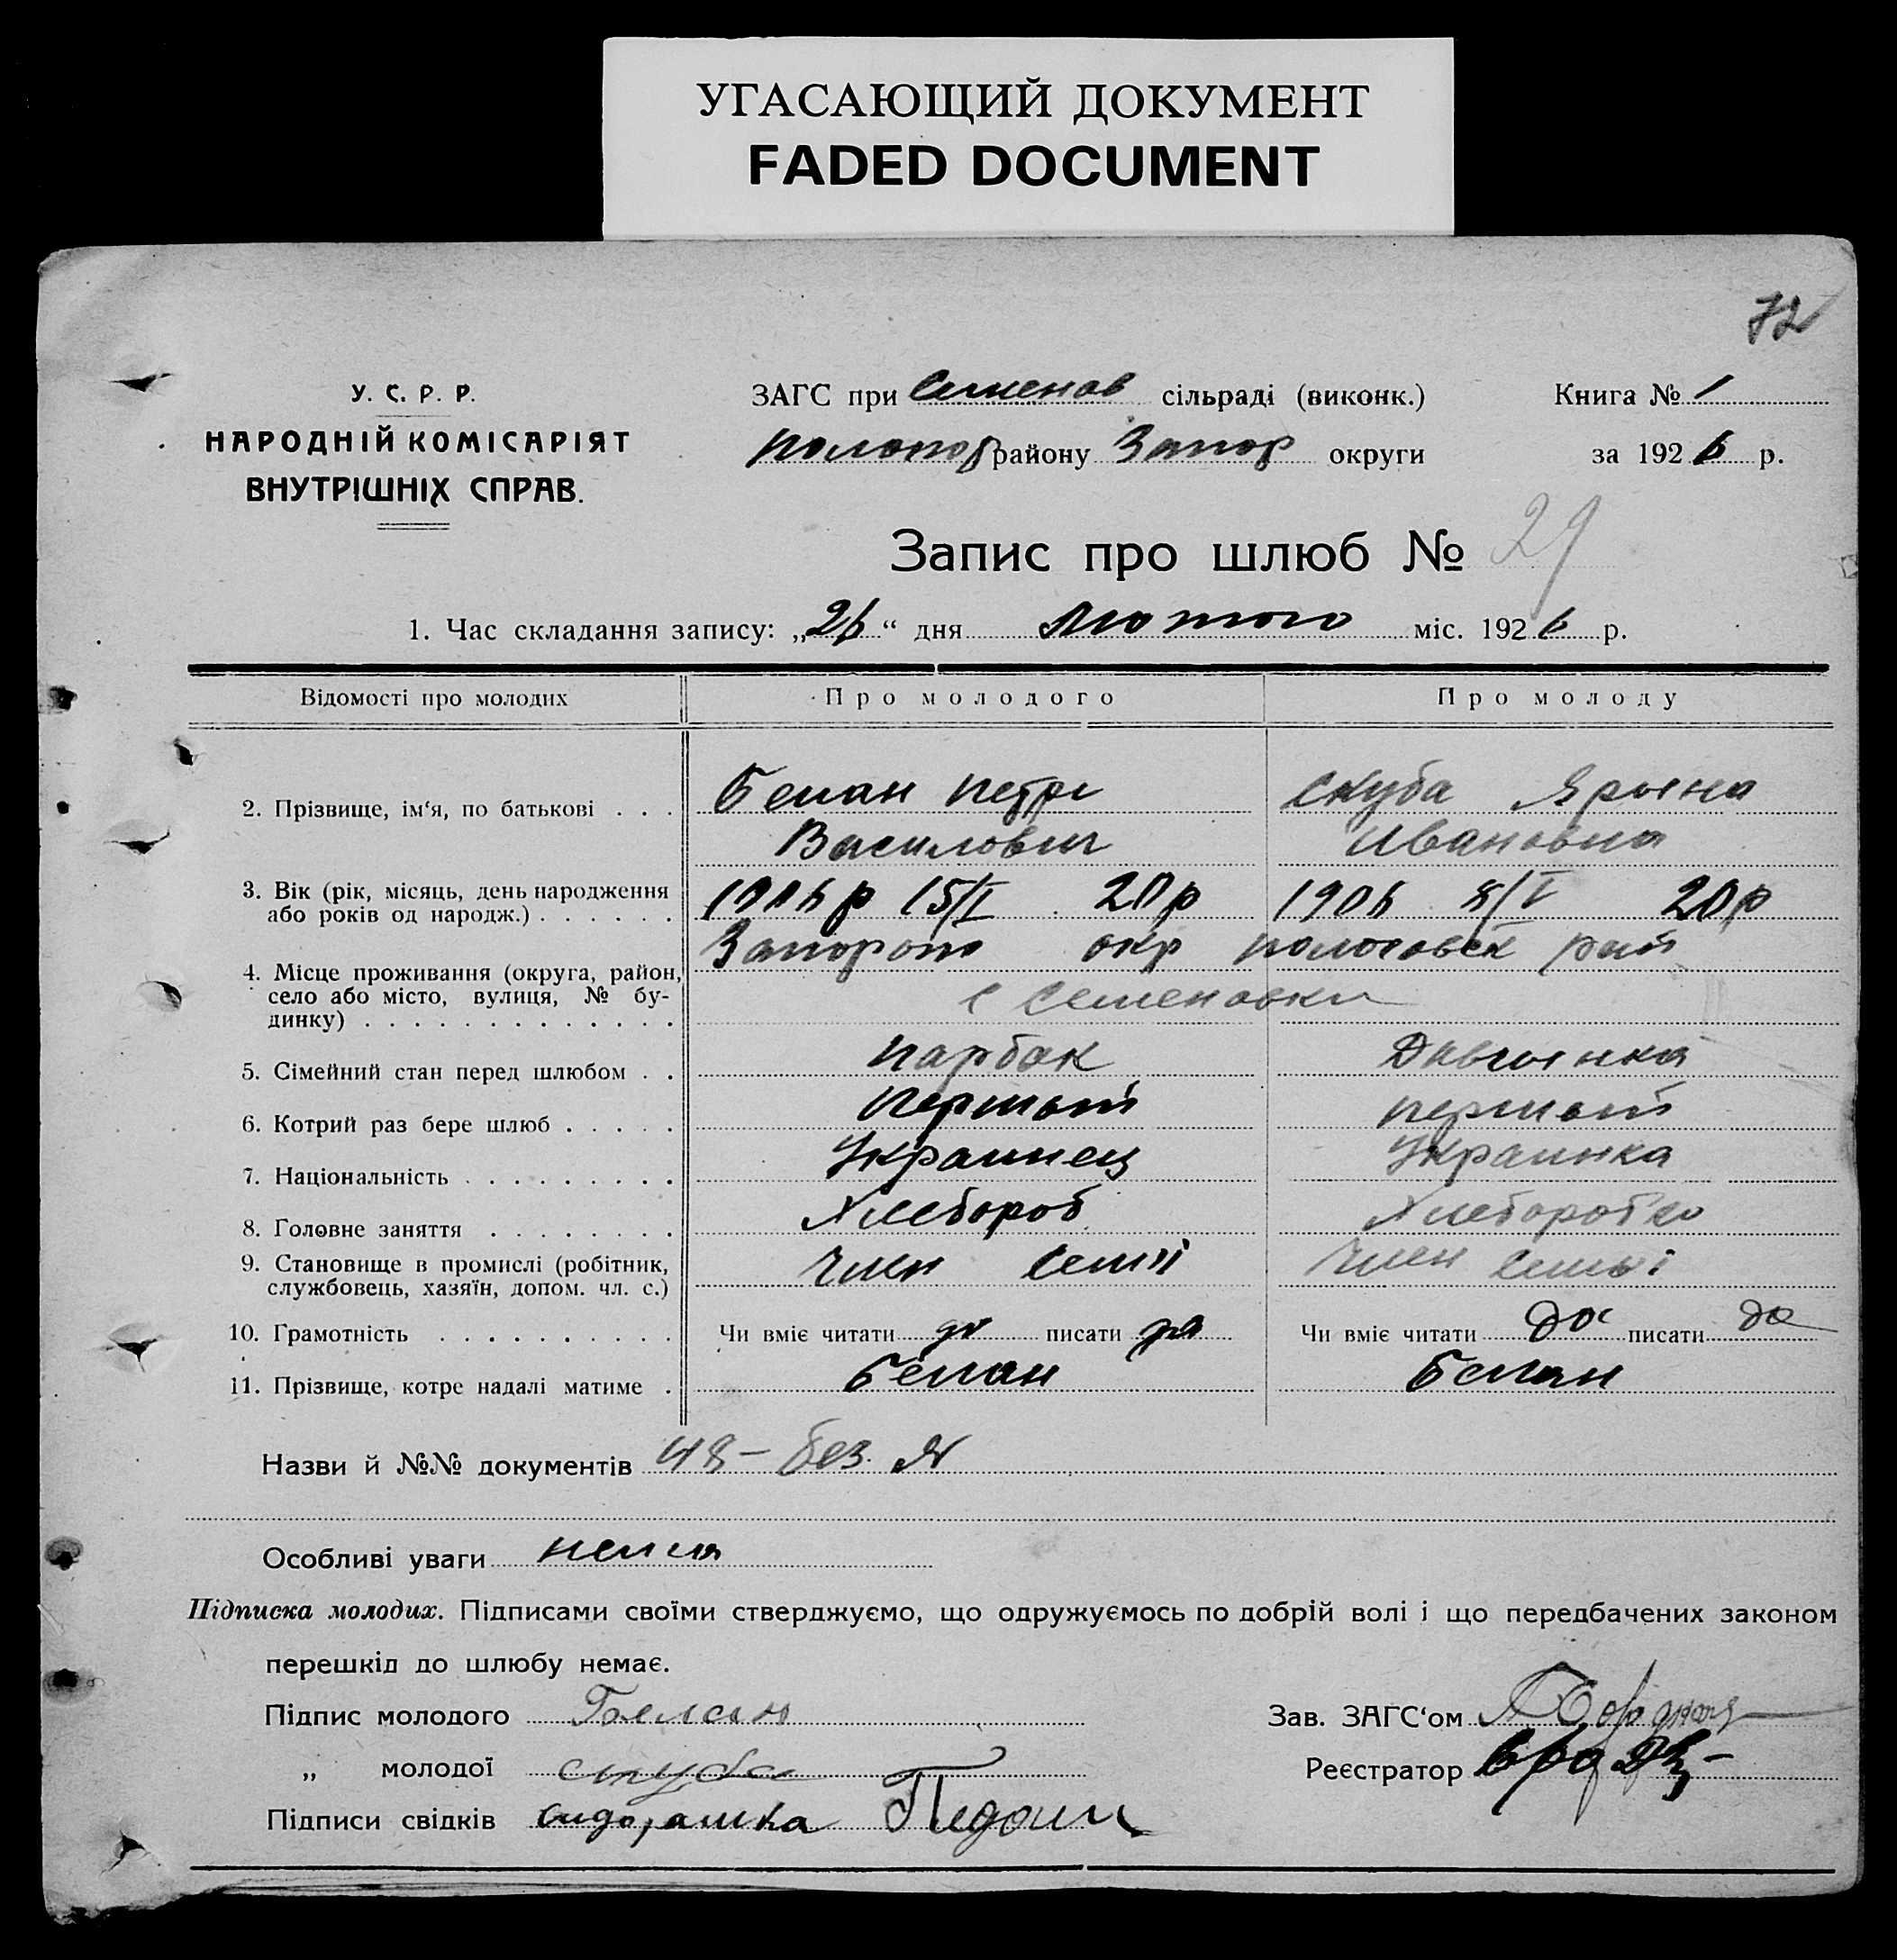 УГАСАЮЩИЙ ДОКУМЕНТ
FADED DOCUMENT
72
У. С. Р. Р.
НАРОДНІЙ КОМІСАРІЯТ
ВНУТРІШНІХ СПРАВ.
ЗАГС при Семенов сільраді (виконк.) Книга № 1
району Запор округи за 1926 р.
Запис про шлюб № 29
1. Час складання запису: „26“ дня Лютого міс. 1926 р.
Відомості про молодих Про молодого Про молоду
2. Прізвище, ім‘я, по батькові . . . Белан Петр Скуба Ярына
Василович Ивановна
3. Вік (рік, місяць, день народження 1906 р 15/I 20 р 1906 8/V 20 р
або років од народж.) . . . . . .
4. Місце проживання (округа, район, окр пологовск рай
село або місто, вулиця, № бу- с Семеновки
динку) . . . . . . . . . . . . .
5. Сімейний стан перед шлюбом . . парбок Дивчынка
6. Котрий раз бере шлюб . . . . . Першый першый
7. Національність . . . . . . . . . Украинец Украинка
8. Головне заняття . . . . . . . . Хлебороб
9. Становище в промислі (робітник, член семьи член семьі
службовець, хазяїн, допом. чл. с.)
10. Грамотність . . . . . . . . . . Чи вміє читати да писати да Чи вміє читати да писати да
11. Прізвище, котре надалі матиме . Белан Белан
Назви й №№ документів без №
Особливі уваги
Підписка молодих. Підписами своїми стверджуємо, що одружуємось по добрій волі і що передбачених законом
перешкід до шлюбу немає.
Підпис молодого Белан Зав. ЗАГС‘ом
„ молодої скуба Реєстратор
Підписи свідків